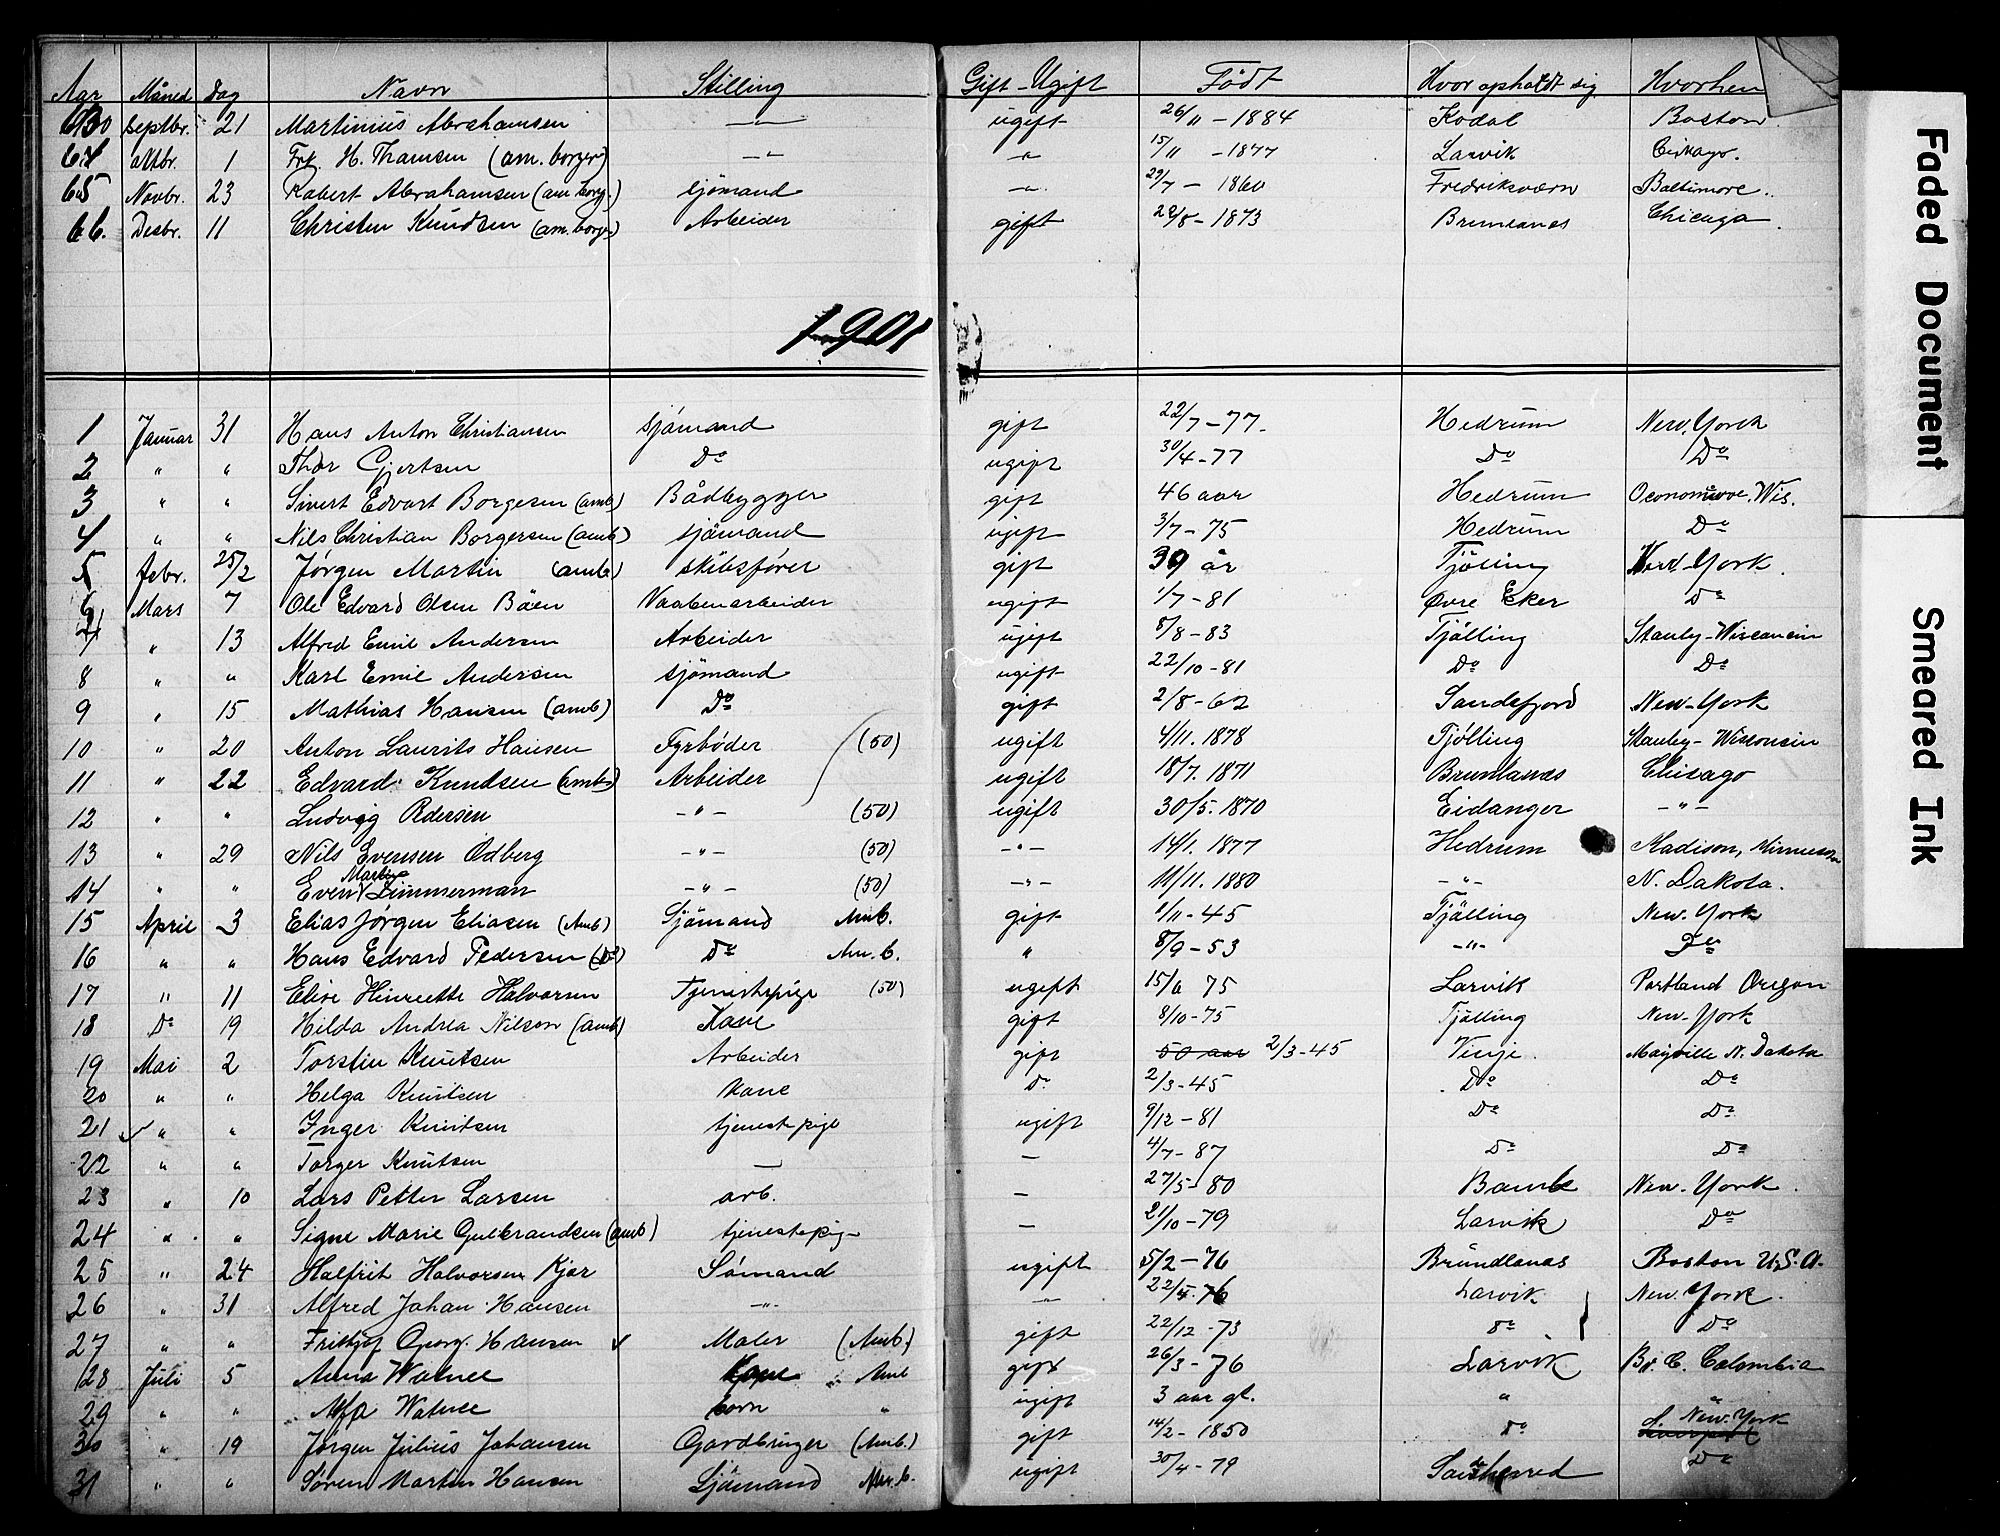 Aar Måned Dag Navn Stilling Gift-Ugift Födt Hvor opholdt sig Hvorhen
Septbr. 21 Martinius Abrahamsen —„— ugift 26/11 - 1884 Kodal Boston
64 Oktbr. 1 Frk H. Thamsen (am. borger) —„— —„— 15/11 - 1877 Larvik Cicago.
65 Novbr. 23 Robert Abrahamsen (am borg.) sjömand —„— 29/7 - 1860 Fredriksværn Baltimore.
66. Desbr. 11 Christen Knudsen (am. borger) Arbeider gift 28/8 - 1873 Brunlanes Chicago
1901
1 Januar 31 Hans Anton Christiansen sjömand gift 22/7 - 77. Hedrum New-York
2 „ „ Thor Gjertsen Do ugift 30/4 - 77 Do Do
3 „ „ Sivert Edvart Borgesen (amb) Bådbygger gift 46 aar Hedrum Wis.
4 „ „ Nils Christian Borgersen (amb) sjömand ugift 3/7 - 75 Hedrum Do
5 Febr. 25/2 Jørgen Martin (amb) skibsfører gift 39 år Tjölling New-York
6 Mars 7 Ole Edvard Olsen Båen Vaabenarbeider ugift 1/7 - 81 Øvre Eker Do
7 „ 13 Alfred Emil Andersen Arbeider ugift 8/8 - 83 Tjölling Stanley-Wisconsin
8 „ „ Karl Emil Andersen sjömand ugift 22/10 - 81 Do Do
9 „ 15 Mathias Hansen (amb) Do gift 2/8 - 62 Sandefjord New-York
10 „ 20 Anton Laurits Hansen Fyrbøder (50) ugift 4/11. 1878 Tjølling Stanley-Wisconsin
11 „ 22 Edvard Knudsen (amb) Arbeider ugift 18/7. 1871 Brunlanes Chicago
12 „ „ Ludvig Pedersen —„— (50) ugift 30/5. 1870 Eidanger —„—
13 „ 29 Nils Evensen Odberg —„— (50) —„— 14/1. 1877 Hedrum Madison, Minneso
14 „ „ Even Martin Zimmerman —„— (50) —„— 11/11. 1880 —„— N. Dakota.
15 April 3 Elias Jørgen Eliasen (Amb) Sjömand Amb. gift 1/11 - 45 Tjölling New-York
16 „ „ Hans Edvard Pedersen (Do) Do Am.b. „ 8/9 - 53 —„— Do
17 „ 11 Elise Henriette Halvorsen Tjenestepige (50) ugift 15/6 75 Larvik Portland Oregon
18 Do 19 Hilda Andrea Nilson (amb) Kone gift 8/10 - 75 Tjölling New-York
19 Mai 2 Torstein Knutsen Arbeider gift 50 aar 2/3 - 45 Vinje. Mayville N. Dakota
20 „ „ Helga Knutsen kone Do 2/3 - 45 Do Do
21 „ „ Inger Knutsen tjenestepige ugift 9/12 - 81 Do Do
22 „ „ Torger Knutsen — — 4/7 - 87 Do Do
23 „ 10 Lars Petter Larsen arb. — 27/5 - 80 Bamble New-York
24 „ „ Signe Marie Gulbrandsen (amb) tjenestepige — 21/10 - 79 Larvik Do
25 „ 24 Halfrit Halvorsen Kjær Sømand ugift 5/2 - 76 Brundlanes Boston U.S.A.
26 „ 31 Alfred Johan Hansen —„— —„— 22/5-76 Larvik New York
27 „ „ Fritjof Georg Hansen Maler (Amb.) gift 22/12 - 73 Do Do
28 Juli 5 Anna Watnee Kone Amb gift 26/3 - 76 Larvik Br. C. Colombia
29 „ „ Watnee barn „ ugift 3 aar gl. „ „
30 „ 19 Jørgen Julius Johansen Gardbruger (Amb.) gift 14/2 - 1850 Do New York
31 „ „ Søren Martin Hansen Sjömand Am.b. ugift 30/4 - 79 Sandeherred Do
Faded Document
Smeared Ink